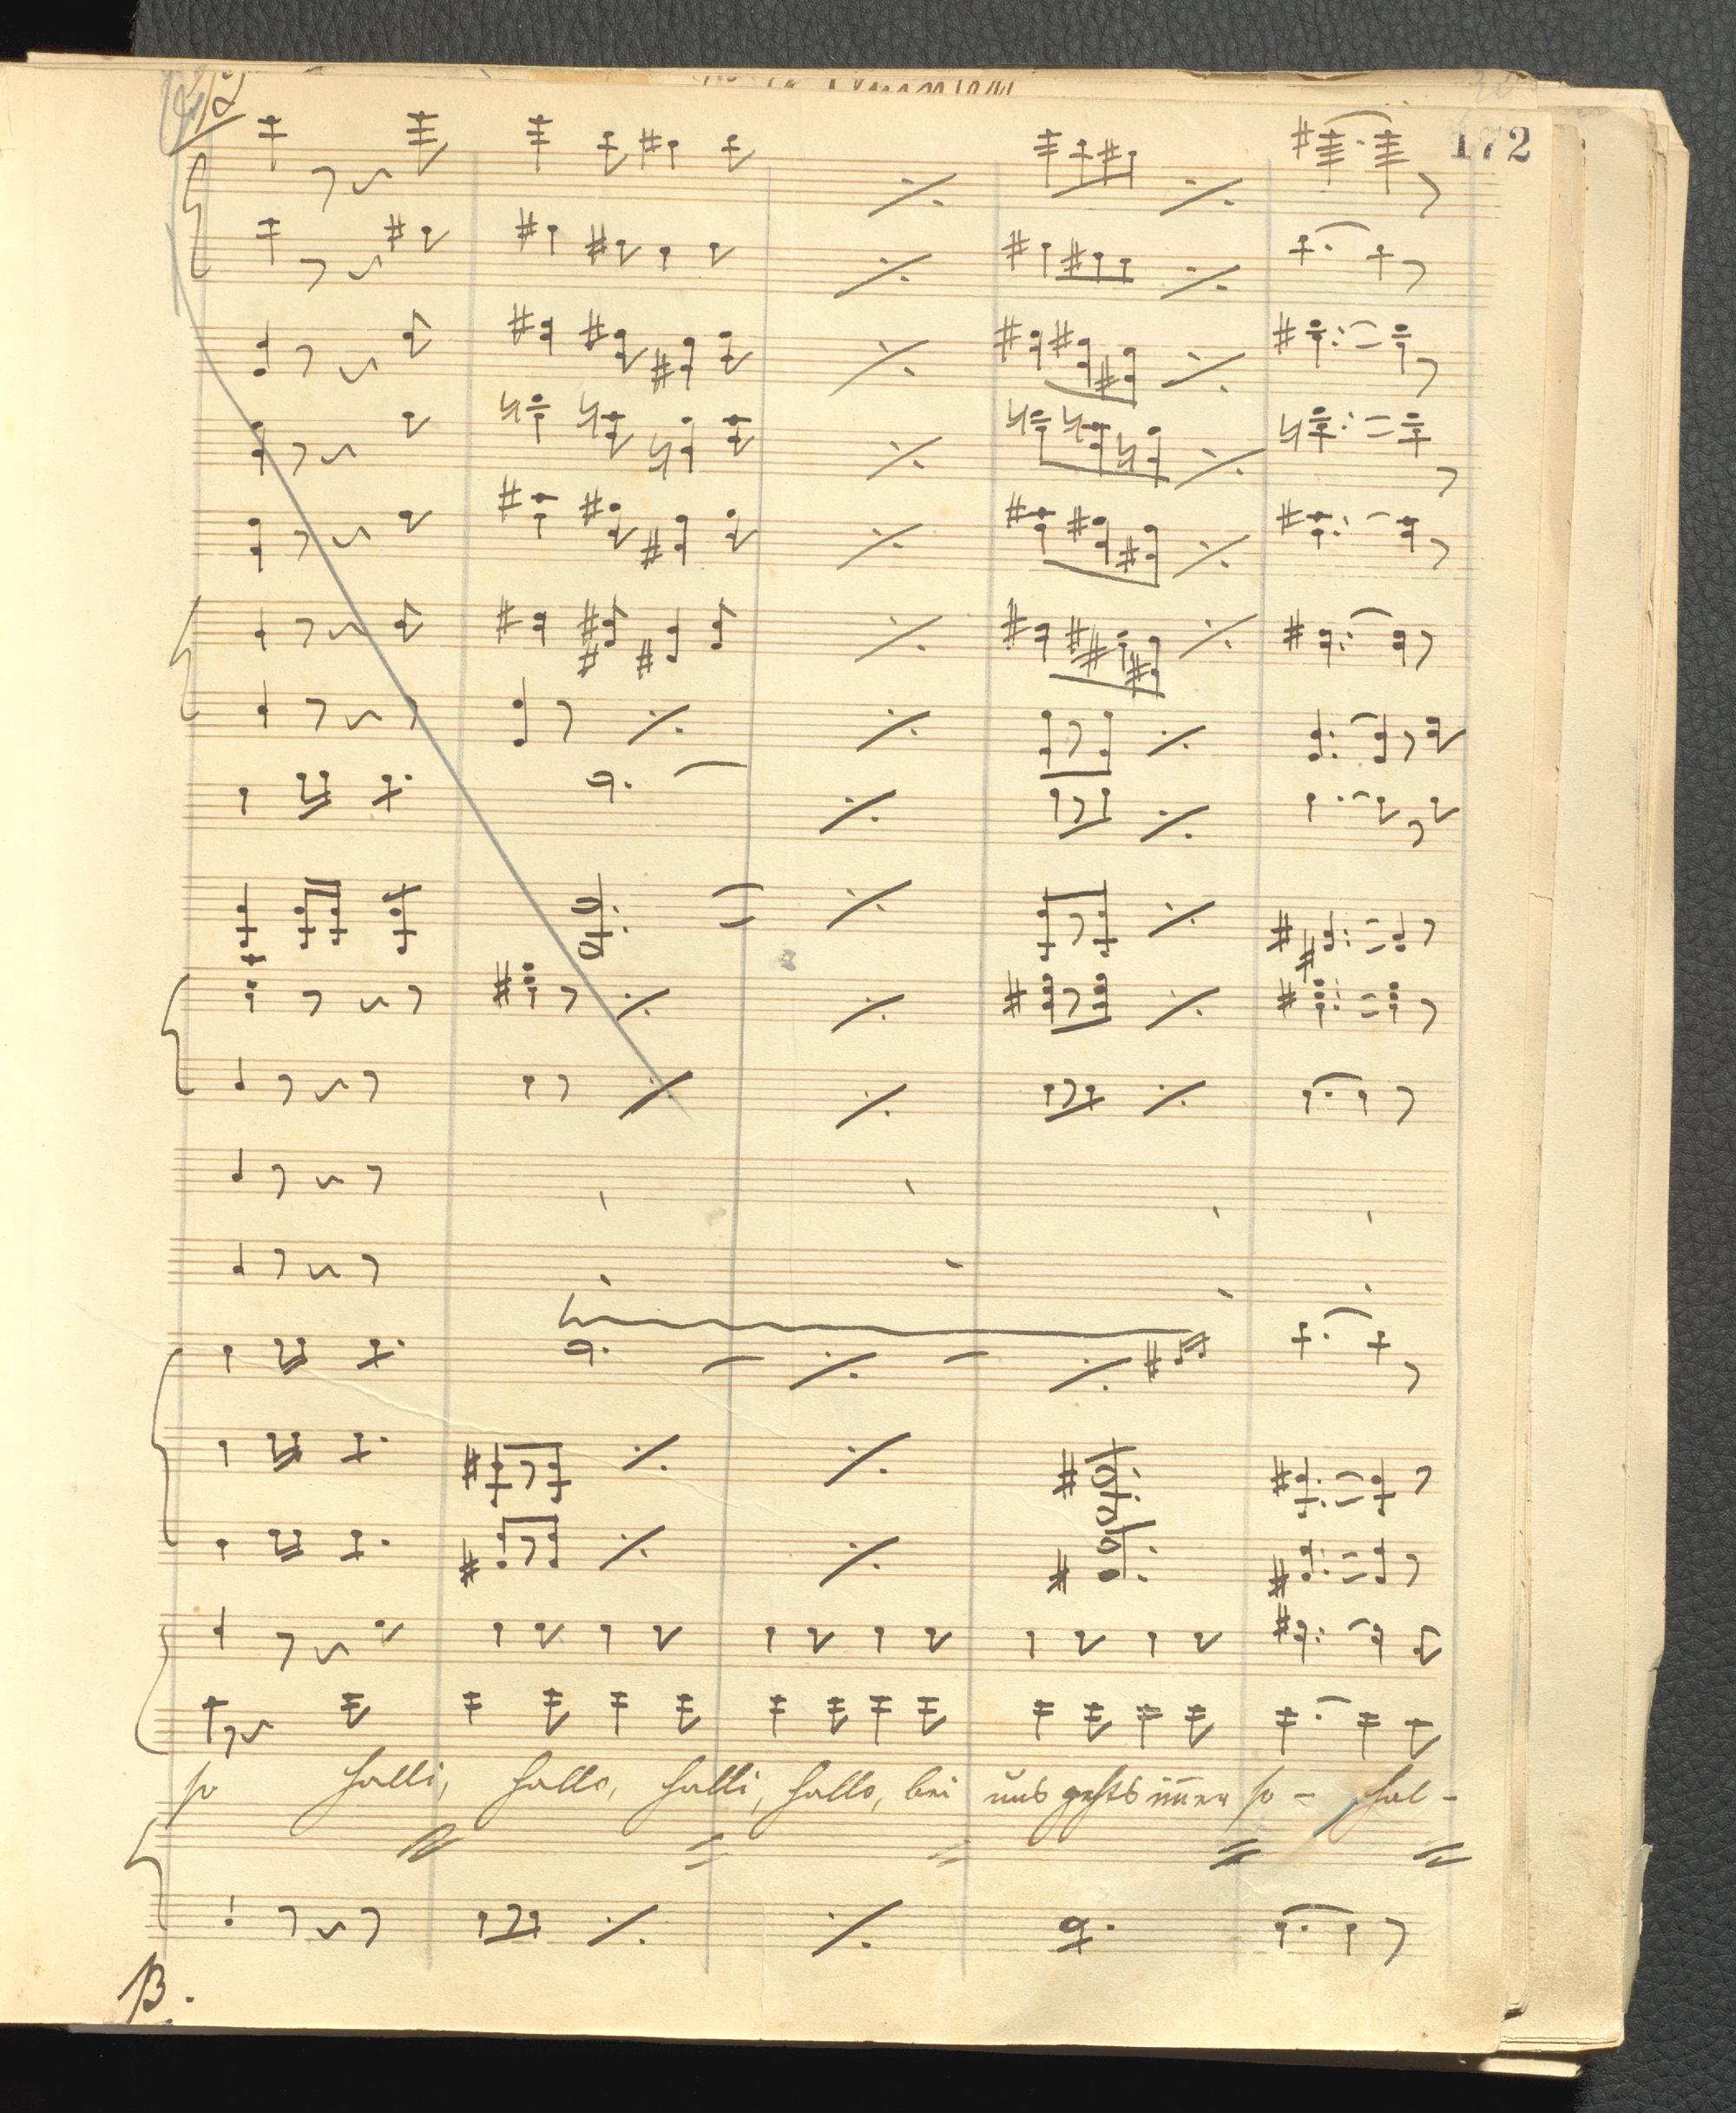 172
so halli, hallo, halli, hallo, bei uns gehts im̄er so - hal -
B.